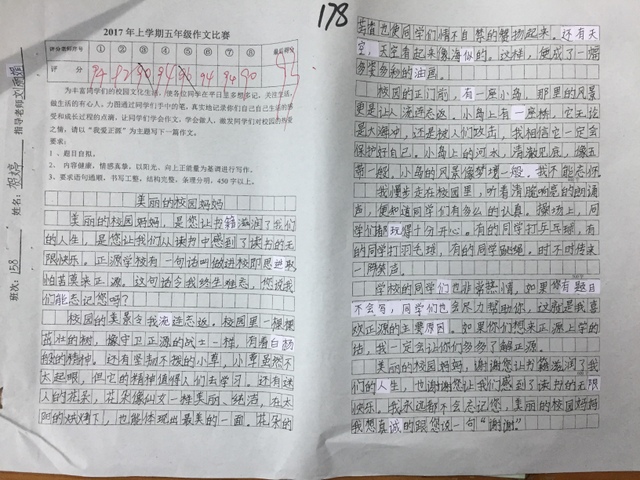 178
2017年上学期五年级作文比赛
评价老师符号 ① ② ③ ④ ⑤ ⑥ ⑦ ⑧ 最后得分
评 分 94 82 90 94 90 94 94 90
为丰富同学们的校园文化生活,使各位同学在平日里多想多记,关注生活,
做生活的有心人,力图通过同学们手中的笔,真实地记录你们自己自己生活的感
受和成长过程的点滴,让同学们学会作文,学会做人,激发同学们对校园的热爱
之情,请以“我爱正源”为主题写下一篇作文。
要求:
1、题目自拟。
2、内容健康,情感真挚,以阳光、向上正能量为基调进行写作。
3、要求语句通顺,书写工整,结构完整,条理分明,450字以上。
班次: 158
姓名:
指导老师
美丽的校园妈妈
美丽的校园妈妈,是您让书籍滋润了我们
的人生,是您让我们从读书中感到了读书的无
限快乐。正源学校有一句话叫做进校即思进取
怕苦莫来正源。这句话令我终生难忘,您说我
们能忘记您吗?
校园的美景令我流连忘返。校园里一棵棵
茁壮的树,像守卫正源的战士一样,有着白杨
般的精神。还有坚韧不拔的小草,小草虽然不
太起眼,但它的精神值得人们去学习。还有迷
人的花朵,花朵像仙女一样美丽、纯洁,在太
阳的烘烤下,也能体现出最美的一面。花朵的
也使同学们情不自禁的赞扬起来。还有天
空,天空看起来像海似的。这样,便成了一幅
多姿多彩的油画。
校园的正门前,有一座小岛,那里的风景
更是让人流连忘返。小岛上有一座桥,它无论
是大海冲,还是被人们攻击,我相信它一定会
保护好自己。小岛上的河水,清澈见底,像五
彩一般。小岛的风景像梦境一般,我不能忘怀
我慢步走在校园里,听着清脆响亮的朗诵
声,便知道同学们有多么的认真。操场上,同
学们都玩得十分开心。有的同学打乒乓球,有
的同学打羽毛球,有的同学跳绳。时不时传来
一阵笑声。
学校的同学们也非常热情,如果你有题目
不会写,同学们也会尽力帮助你,这就是我喜
欢正源的主要原因。如果你们想来正源上学的
话,我一定会让你们多多了解正源。
美丽的校园妈妈,谢谢您让书籍滋润了我
们的人生,也谢谢您让我们感到了读书的无限
快乐。我永远都不会忘记您,美丽的校园妈妈
我想真诚的跟您说一句“谢谢”